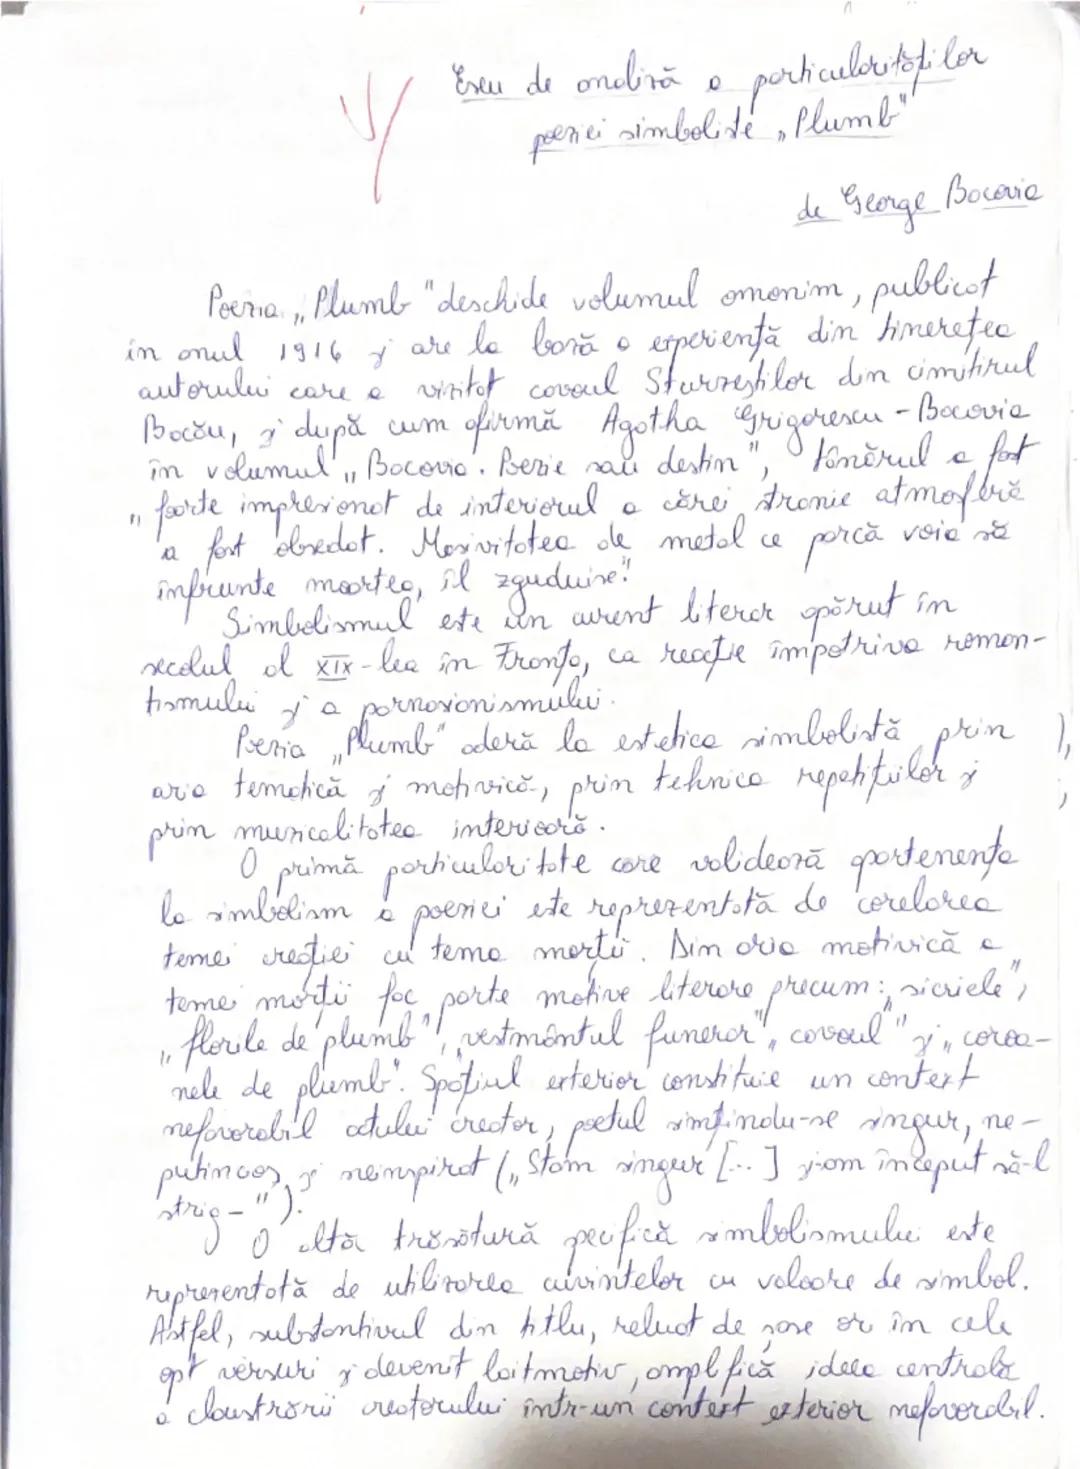 Eseu de analiză a particularităților
poeziei simboliste „Plumb"
de George Bacovia
Poezia „Plumb" deschide volumul omonim, publicat
în anul 1916 și are la bază o experiență din tinerețea
autorului care a vizitat cavoul Sturzeștilor din cimitirul
Bacău, și după cum afirmă Agatha Grigorescu - Bacovia
în volumul „Bacovia. Poezie sau destin", tânărul a fost
„foarte impresionat de interiorul a cărei stranie atmosferă
a fost obsedat. Masivitatea de metal ce parcă voia să
înfrunte moartea, îl zguduise."
Simbolismul este un curent literar apărut în
secolul al XIX-lea în Franța, ca reacție împotriva roman-
tismului și a parnasianismului.
Poezia „Plumb" aderă la estetica simbolistă prin
aria tematică și motivică, prin tehnica repetițiilor și
prin muzicalitatea interioară.
O primă particularitate care validează apartenența
la simbolism a poeziei este reprezentată de corelarea
temei creației cu tema morții. Din aria motivică a
temei morții fac parte motive literare precum: „sicriele",
„florile de plumb", „vestmântul funerar", „cavoul" și „coroa-
nele de plumb". Spațiul exterior constituie un context
nefavorabil actului creator, poetul simțindu-se singur, ne-
putincios și neinspirat („Stam singur [...] și-am început să-l
strig -").
O altă trăsătură specifică simbolismului este
reprezentată de utilizarea cuvintelor cu valoare de simbol.
Astfel, substantivul din titlu, reluat de șase ori în cele
opt versuri și devenit laitmotiv, amplifică ideea centrală
a claustrării creatorului într-un context exterior nefavorabil.